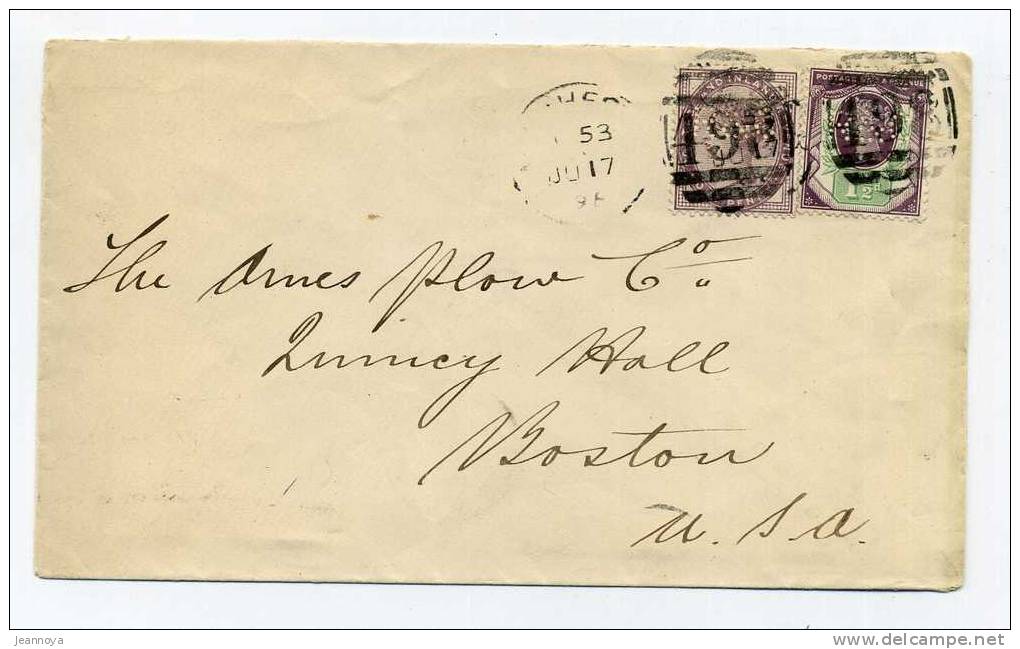 53
JU 17
POSTAGE & REVENUE
1½d
The Ames Plow Co.
Quincy Hall
Boston
U.S.A.
jeannoya
www.delcampe.net